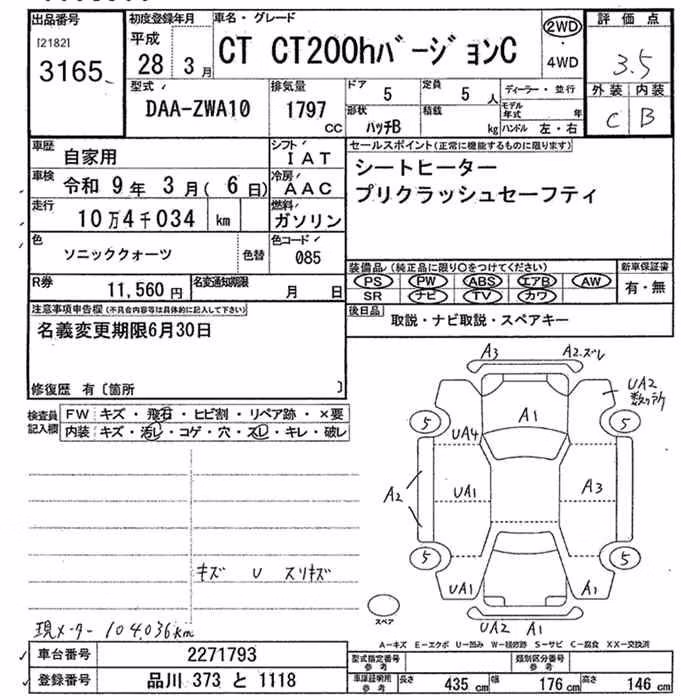 出品番号 初度登録年月 車名・グレード 2WD 評価点
[2182] 平成 CT CT200hバージョンC ・ 3.5
3165 28年3月 4WD
型式 排気量 ドア 定員 ディーラー・並行 外装 内装
DAA-ZWA10 1797 cc 5 5人 モデル年式 年 C B
形状 積載 ハンドル 左・右
ハッチB kg
車歴 自家用 シフト IAT セールスポイント(正常に機能するものに限ります)
車検 令和9年3月(6日) 冷房 AAC シートヒーター
走行 10万4千034 km 燃料 ガソリン プリクラッシュセーフティ
色 ソニッククォーツ 色替 色コード 085
R券 11,560円 名変通知期限 月 日 装備品(純正品に限り○をつけてください) 新車保証書
PS PW ABS エアB AW 有・無
SR ナビ TV カワ
注意事項申告欄(不具合内容等は具体的に記入して下さい) 後日品 取説・ナビ取説・スペアキー
名義変更期限6月30日
修復歴 有〔箇所 〕
検査員記入欄 FW キズ・飛石・ヒビ割・リペア跡・×要
内装 キズ・汚レ・コゲ・穴・スレ・キレ・破レ
A3 A2ズレ
UA2 数ヶ所
5 A1 5
UA4
A2 UA1 A3
5 5
UA1 A1
UA2 A1
スペア
キズ U スリキズ
現メーター 104,036km
A-キズ E-エクボ U-凹み W-補修跡 S-サビ C-腐食 XX-交換済
車台番号 2271793 型式指定番号 参考 類別区分番号 参考
登録番号 品川 373 と 1118 車庫証明用 参考 長さ 435cm 幅 176cm 高さ 146cm